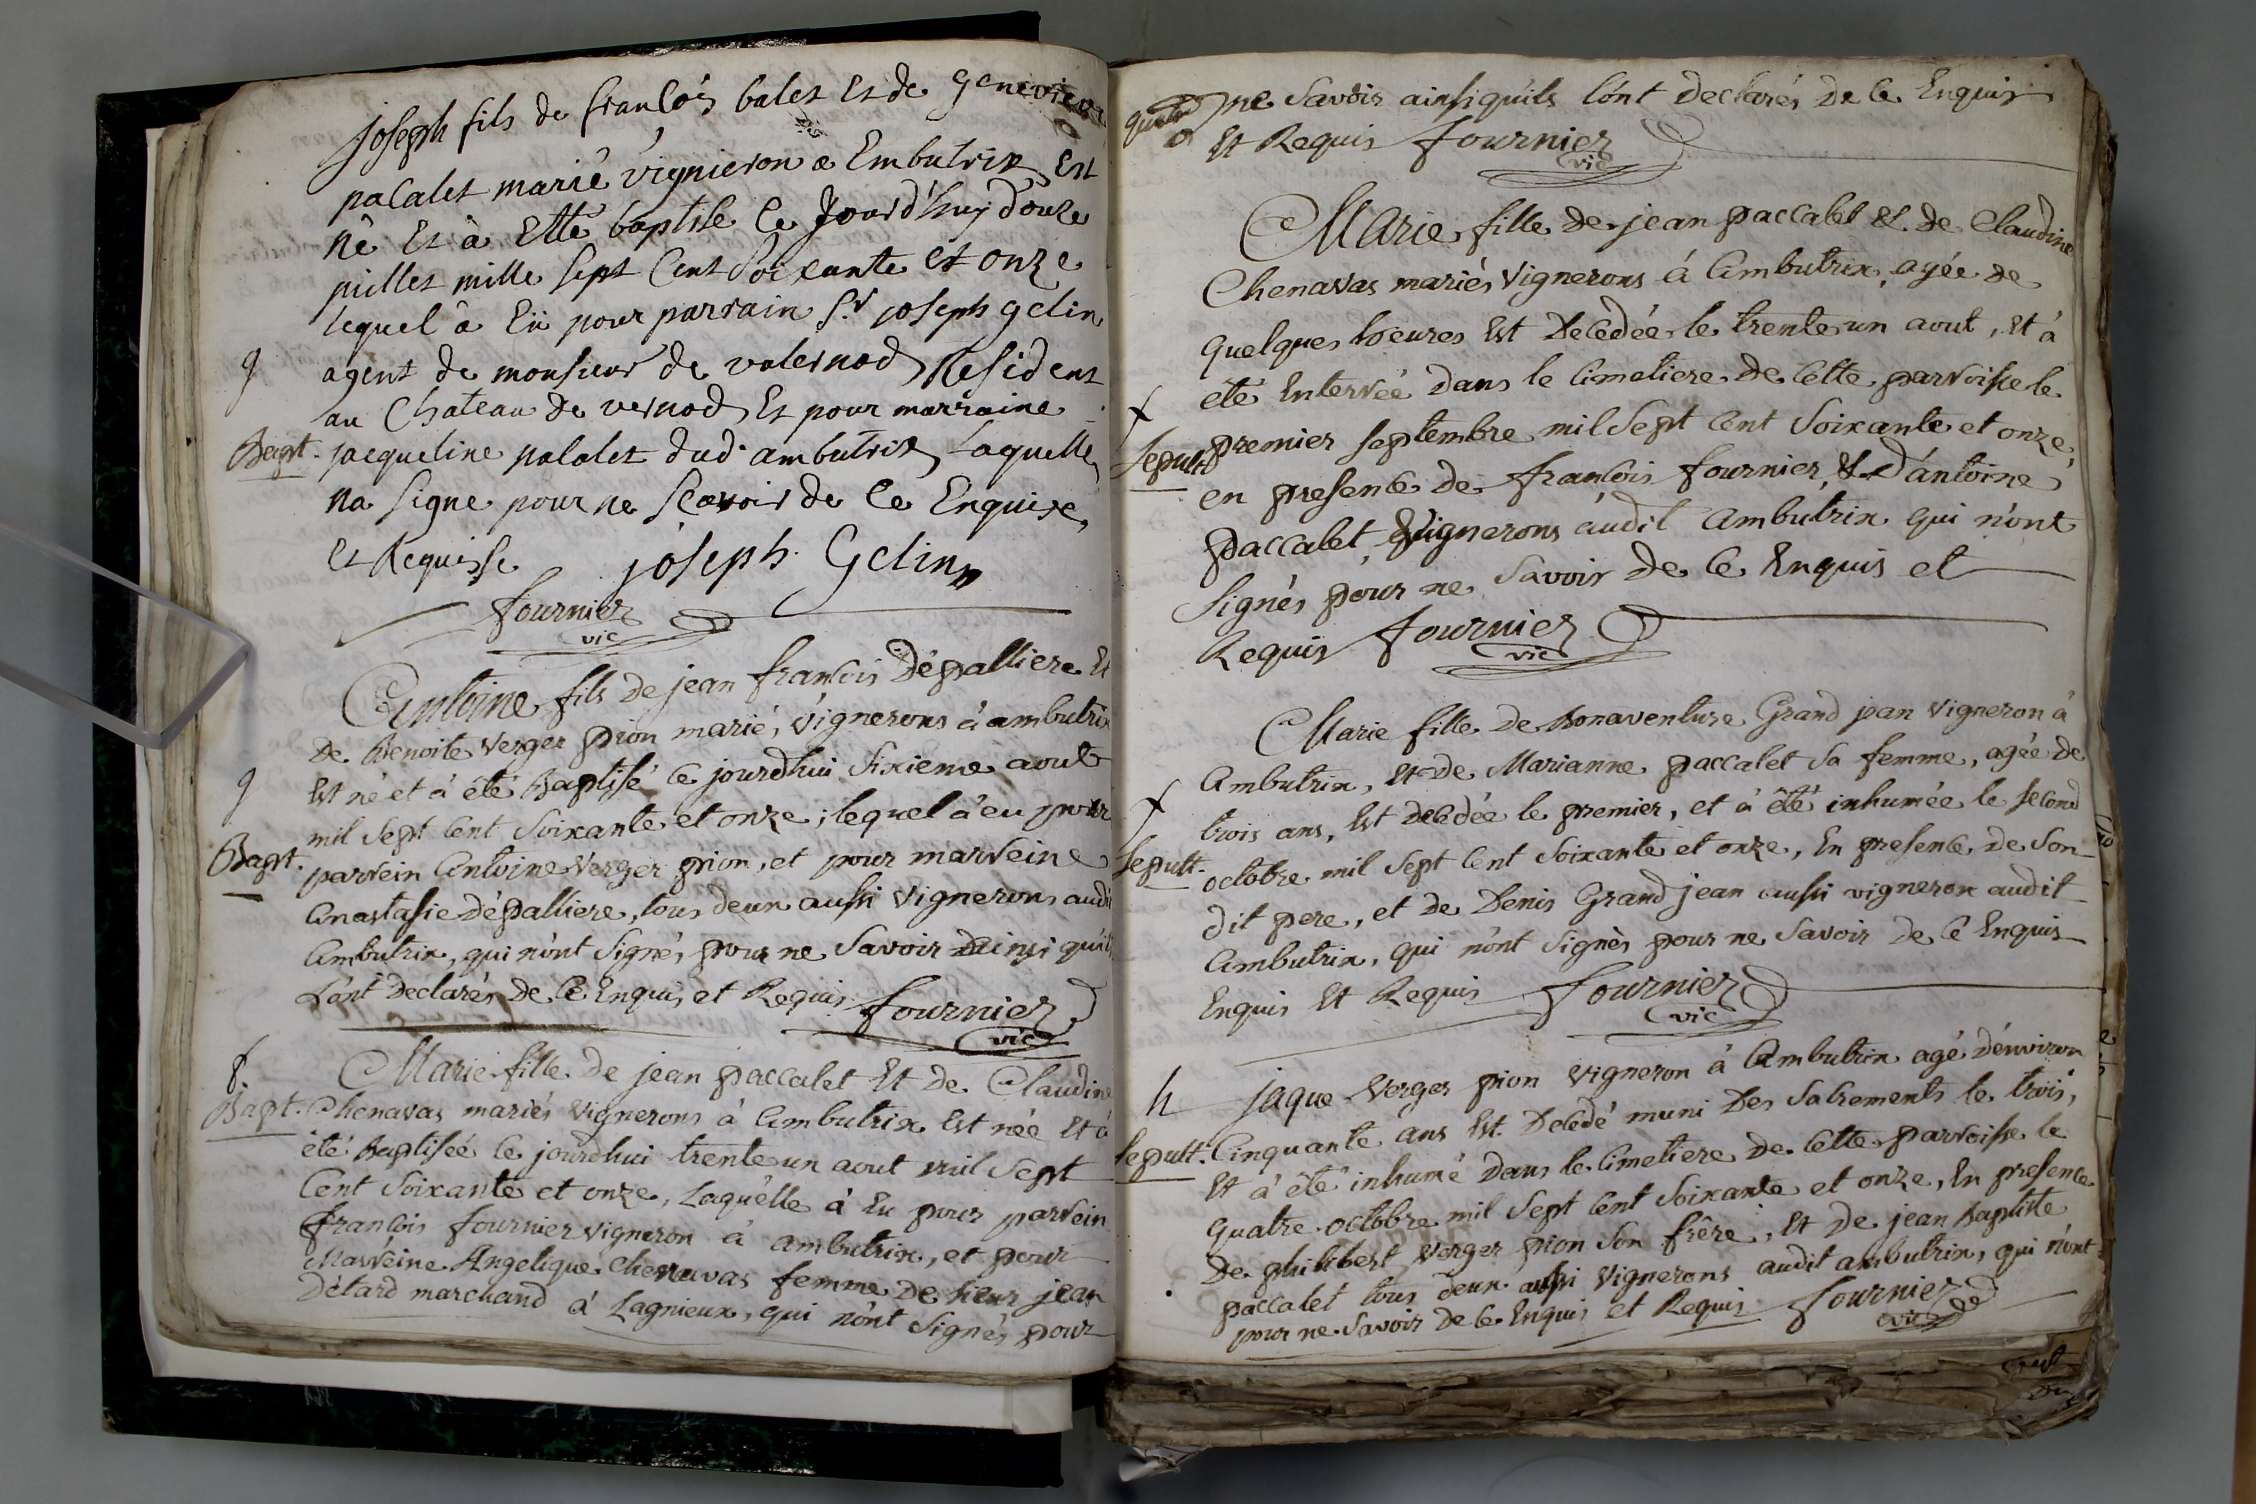 joseph fils de francois balet et de genevieve
pacalet marié vignieron a Embutrix Est
né Et à Etté baptise ce Jourd'huy douze
juillet mille sept Cent Soixante et onze
lequel à Eü pour parrain Sr joseph gelin
g
agent de monsieur de valernod Resident
au Chateau de vernod Et pour marraine
Bapt. jacqueline palalet dud. ambutrix Laquelle
na signe pour ne Scavoir de ce Enquise,
et Requisse joseph Gelin
fournier
vic
Antoine fils de jean francois Dépalliere Et
De Benoite Verger pion marié, vignerons à ambutrix
g
Est né et à été Baptisé ce jourdhui sixieme aout
mil sept cent soixante et onze; lequel à eu pour
Bapt. parrein Antoine Verger pion, et pour marreine
Anastasie dépalliere, tous deux aussi vignerons audit
Ambutrix, qui nont signés pour ne savoir ainsi qu'ils
L'ont declarés De ce Enquis et Requis fournier
vic
8.
Marie fille de jean paccalet Et de Claudine
Bapt. Chenavas mariés vignerons à Ambutrix Est née Et à
été Baptisée ce jourdhui trente un aout mil Sept
Cent soixante et onze, Laquelle à Eu pour parrein
françois fournier vigneron à ambutrix, et pour
Marreine Angelique chenavas femme de sieur jean
Détard marchand à Lagnieux, qui nont Signés pour
ne savoir ainsi quils lont declarés De ce Enquis
Et Requis fournier
vic
Marie fille de jean paccalet & de Claudine
Chenavas mariés vignerons á Ambutrix, agée de
quelques hoeures Est Decedée le trente un aout, Et à
été Enterrée dans le cimetiere de cette parroisse le
premier septembre mil Sept cent soixante et onze,
Sepult.
en presence de francois fournier, & D'antoine
paccalet vignerons audit ambutrix qui nont
signés pour ne savoir de ce Enquis et
Requis fournier
vic
Marie fille de Bonaventure Grand jean vigneron à
Ambutrix, Et de Marianne paccalet sa femme, agée de
trois ans, Est decedée le premier, et à été inhumée le second
Sepult. octobre mil sept cent soixante et onze, En presence de son
dit pere, et de Denis Grand jean aussi vigneron audit
Ambutrix, qui nont signés pour ne savoir de ce Enquis
Enquis Et Requis fournier
vic
h jaque Verger pion vigneron à Ambutrix agé d'environ
Sepult. Cinquante ans Est Decedé muni Des sacrements le trois,
Et à été inhumé dans le cimetiere de cette parroisse le
quatre octobre mil sept cent soixante et onze, En presence
De philibert Verger pion son frère, Et de jean Baptiste
paccalet tous deux aussi vignerons audit ambutrix, qui nont
pour ne savoir de ce Enquis et Requis fournier
vic